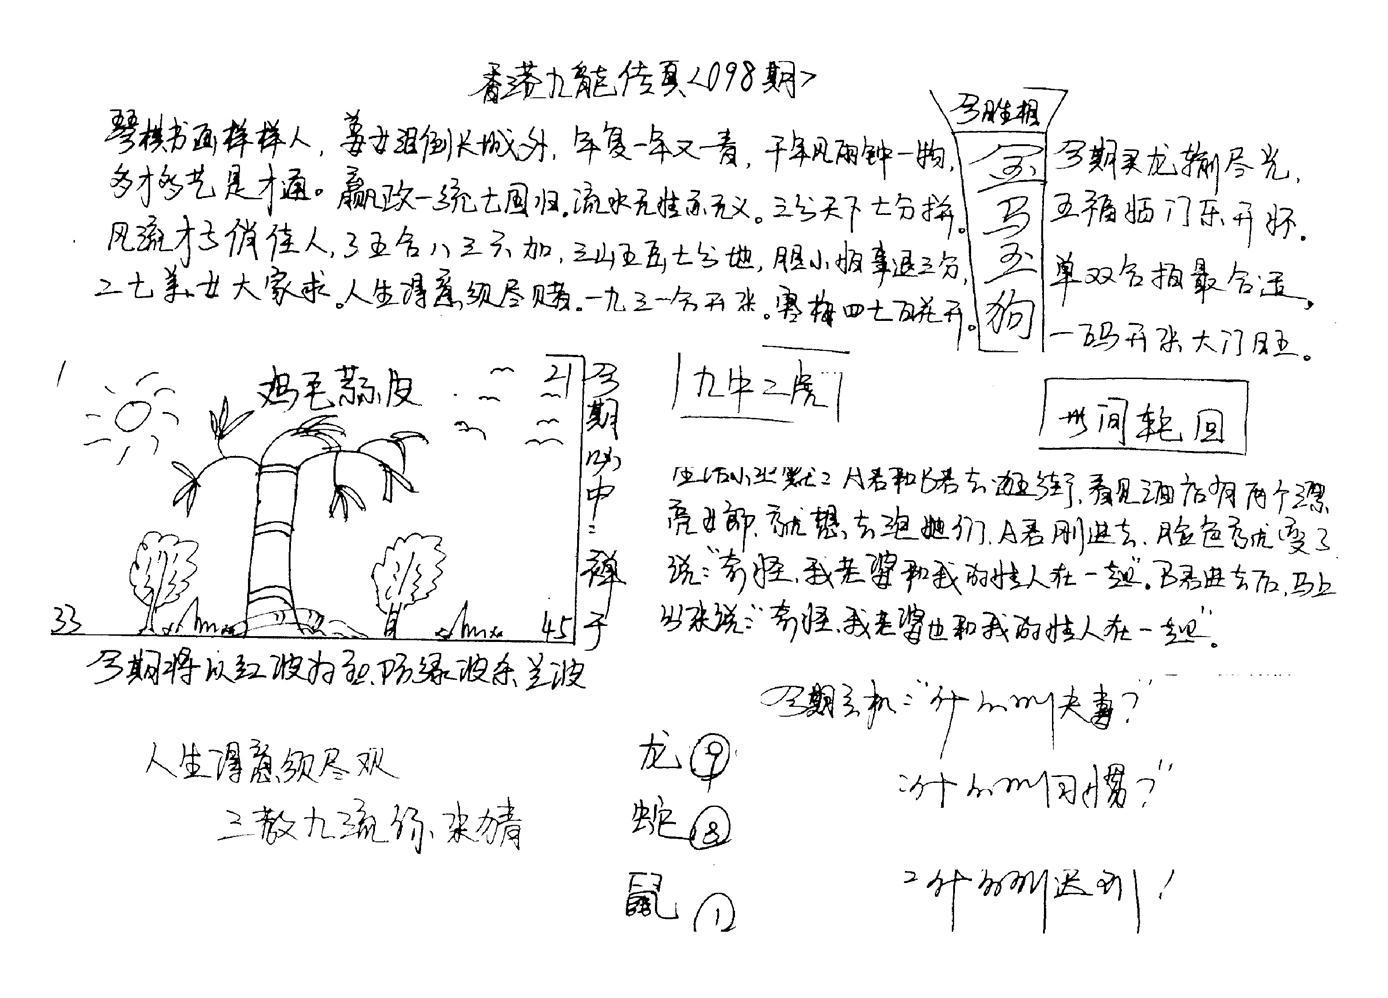 香港九龍传真<098期>
琴棋书画样样人，姜女泪倒长城外，年复一年又一春，千年风雨钟一物，
多才多艺是才通。嬴政一统七国归。流水无情亦无义。三分天下七分拼。
风流才子俏佳人，了五合八三六加，三山五岳七分地，胆小怕事退三分，
二七美女大家求。人生得意须尽赌。一九三一合开来。寒梅四七百花开。
今期生相
金
马
玉
狗
今期买龙输尽光，
五福临门乐开怀。
单双合拍最合适，
一码开来大门旺。
鸡毛蒜皮
21
33
45
今期必中：禅子
今期将以红波为主、防绿波杀兰波
九牛二虎
世间轮回
生活小幽默：A君和B君去逛街，看见酒店有两个漂
亮女郎，就想去泡她们，A君刚进去，脸色就变了
说："奇怪，我老婆和我的情人在一起"。B君进去后，马上
出来说："奇怪，我老婆也和我的情人在一起"。
人生得意须尽欢
三教九流你来猜
龙 ⑨
蛇 ⑧
鼠 ①
今期玄机："什么叫夫妻？"
：什么叫习惯？"
：什么叫迟到！